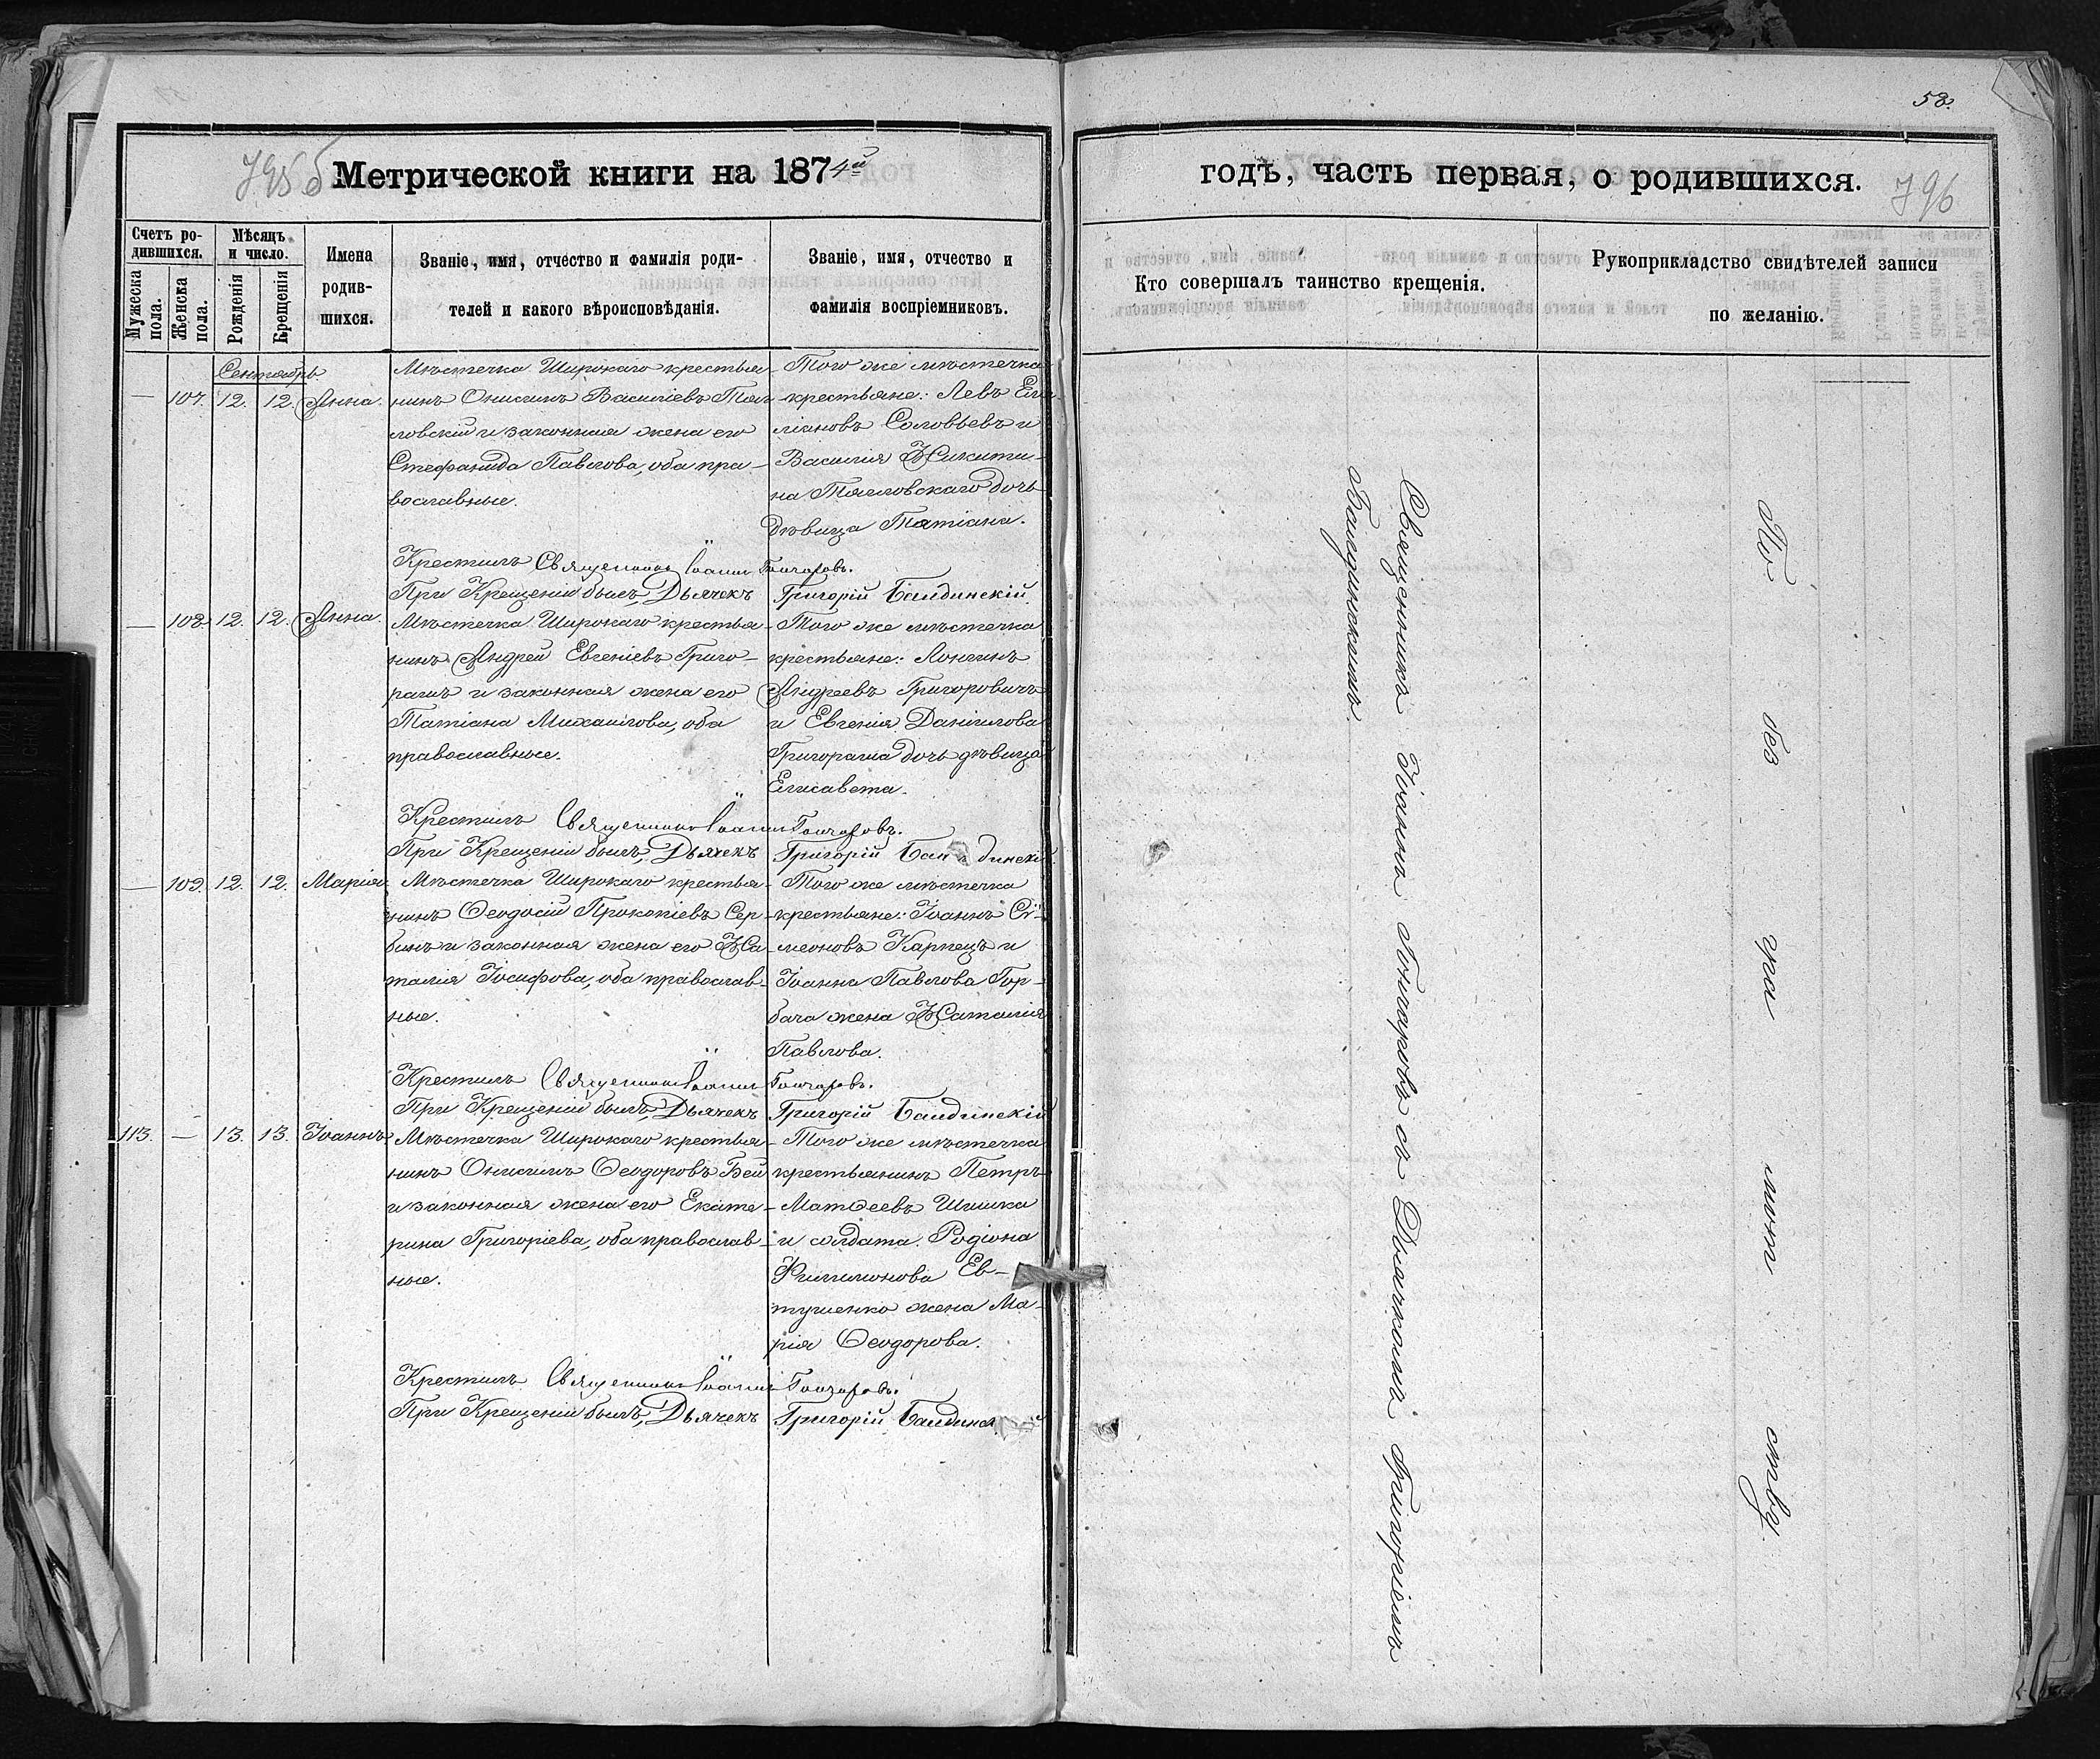 58.
795 б
Метрической книги на 1874й
годъ, часть первая, о родившихся.
796
Счетъ ро-
дившихся.
Мужеска
пола.
Женска
пола.
Мѣсяцъ
и число.
Рожденія
Крещенія
Имена
родив-
шихся.
Званіе, имя, отчество и фамилія роди-
телей и какого вѣроисповѣданія.
Званіе, имя, отчество и
фамилія воспріемниковъ.
Кто совершалъ таинство крещенія.
Рукоприкладство свидѣтелей записи
по желанію.
Сентябрь
— 107. 12. 12. Анна.
Мѣстечка Широкаго крестья-
нинъ Онисимъ Василіевъ Тяг-
ловскій и законная жена его
Стефанида Павлова, оба пра-
вославные.
Того же мѣстечка
крестьяне: Левъ Еми-
ліановъ Соловьевъ и
Василія Никити-
на Тягловскаго дочь
дѣвица Татіана.
Крестилъ Священникъ Іоаннъ Гончаровъ.
При Крещеніи былъ, Дьячекъ Григорій Балдинскій
— 108. 12. 12. Анна.
Мѣстечка Широкаго крестья-
нинъ Андрей Евгеніевъ Григо-
рашъ и законная жена его
Татіана Михаилова, оба
православные.
Того же мѣстечка
крестьяне: Лонгинъ
Андреевъ Григоровичъ
и Евгенія Даніилова
Григораша дочь дѣвица
Елисавета.
Крестилъ Священникъ Іоаннъ Гончаровъ.
При Крещеніи былъ, Дьячекъ Григорій Балдинскій
— 109. 12. 12. Марія.
Мѣстечка Широкаго крестья-
нинъ Ѳеодосій Прокопіевъ Сер-
бинъ и законная жена его На-
талія Іосифова, оба православ-
ные.
Того же мѣстечка
крестьяне: Іоаннъ Сѵ-
меоновъ Карпецъ и
Іоанна Павлова Гор-
бача жена Наталія
Павлова.
Крестилъ Священникъ Іоаннъ Гончаровъ.
При Крещеніи былъ, Дьячекъ Григорій Балдинскій
113. — 13. 13. Іоаннъ
Мѣстечка Широкаго крестья-
нинъ Онисимъ Ѳеодоровъ Бей
и законная жена его Екате-
рина Григоріева, оба православ-
ные.
Того же мѣстечка
крестьянинъ Петръ
Матѳеевъ Шишка
и солдата Родіона
Филимонова Ев-
тушенко жена Ма-
рія Ѳеодорова.
Крестилъ Священникъ Іоаннъ Гончаровъ.
При Крещеніи былъ, Дьячекъ Григорій Балдинскій
Священникъ Іоаннъ Гончаровъ съ Дьячкомъ Григоріемъ
Балдинскимъ
По без гра мот ству